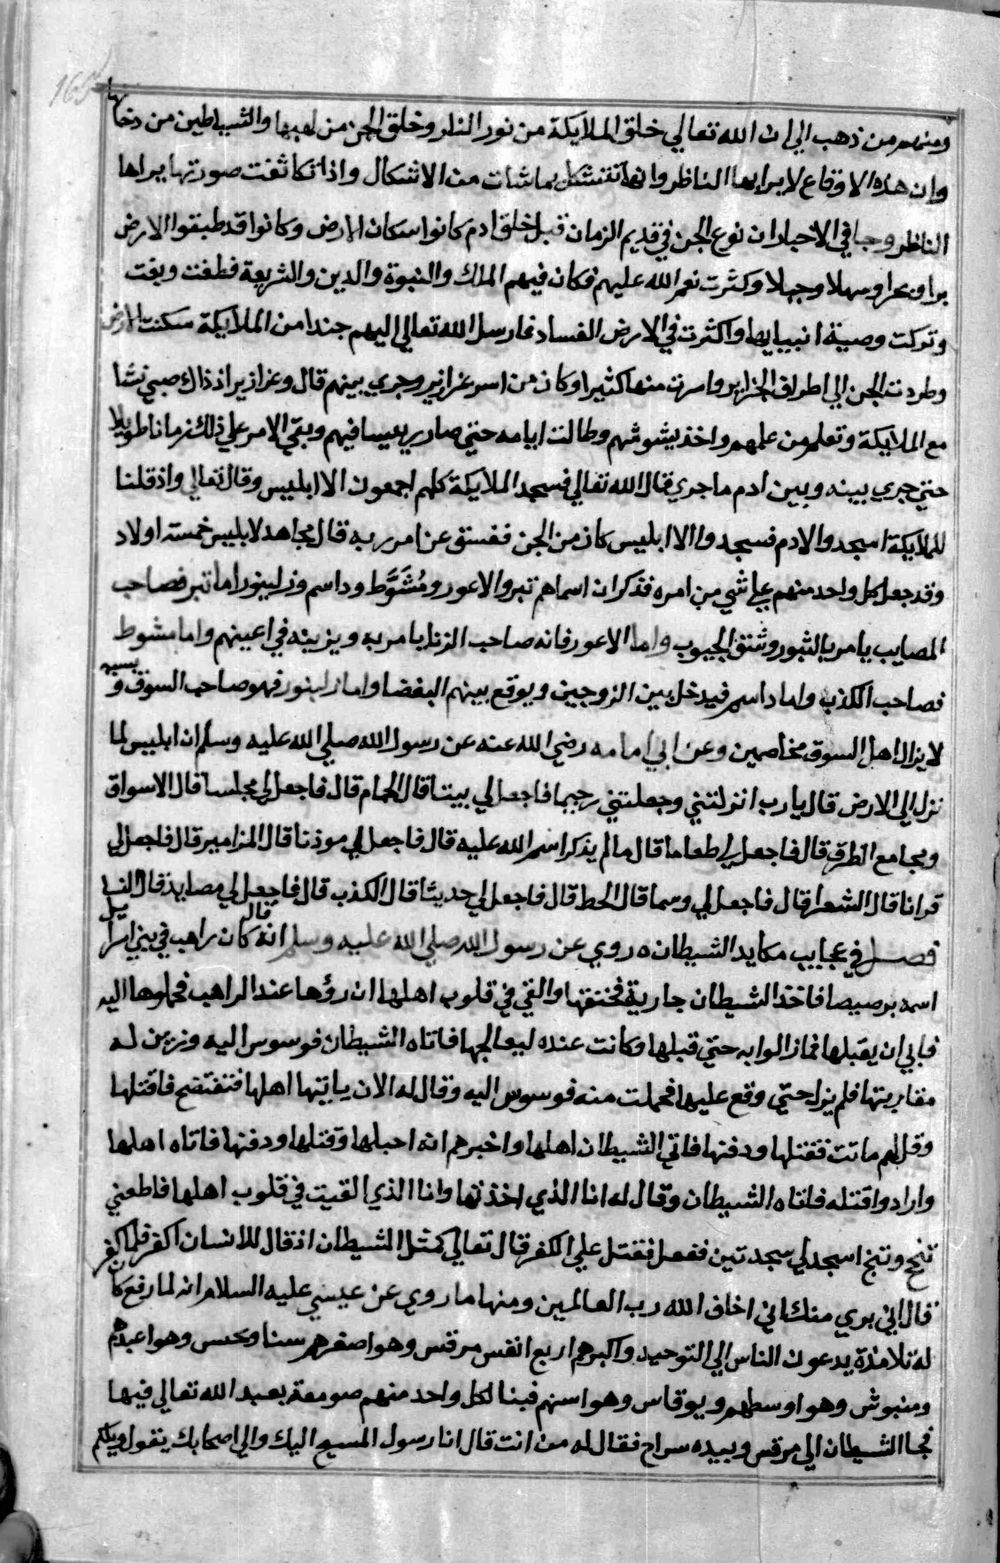 165
ومنهم من ذهب الي ان الله تعالي خلق الملايكة من نور النار وخلق الجن من لهبها والشياطين من دخانها
وان هذه الانواع لا يراها الناظر وانها تتشكل بما شات من الاشكال واذا تكاثفت صورتها يراها
الناظر وجا في الاخبار ان نوع الجن في قديم الزمان قبل خلق ادم كانوا سكان الارض وكانوا قد طبقوا الارض
برا وبحرا وسهلا وجبلا وكثرت نعم الله عليهم فكان فيهم الملك والنبوة والدين والشريعة فطغت وبغت
وتركت وصية انبيايها واكثرت في الارض الفساد فارسل الله تعالي اليهم جندا من الملايكة سكنت الارض
وطردت الجن الي اطراف الجزاير واسرت منها كثيرا وكان من اسر عزازير وجري بينهم قال وعزازير اذ ذاك صبي نشا
مع الملايكة وتعلم من علمهم واخذ يشوشهم وطالت ايامه حتي صار رييسا فيهم وبقي الامر علي ذلك زمانا طويلا
حتي جري بينه وبين ادم ما جري قال الله تعالي فسجد الملايكة كلهم اجمعون الا ابليس وقال تعالي واذ قلنا
للملايكة اسجدوا لادم فسجدوا الا ابليس كان من الجن ففسق عن امر ربه قال مجاهد لابليس خمسة اولاد
وقد جعل كل واحد منهم علي شي من امره فذكر ان اسماهم تبر والاعور ومُشَوَّط وداسم وزلبنور اما تبر فصاحب
المصايب يامر بالثبور وشق الجيوب واما الاعور فانه صاحب الزنا يامر به ويزينه في اعينهم واما مشوط
فصاحب الكذب واما داسم فيدخل بين الزوجين ويوقع بينهم البغضا واما زلبنور فهو صاحب السوق وبسببه
لا يزال اهل السوق مخاصمين وعن ابي امامه رضي الله عنه عن رسول الله صلي الله عليه وسلم ان ابليس لما
نزل الي الارض قال يا رب انزلتني وجعلتني رجيما فاجعل لي بيتا قال الحمام قال فاجعل لي مجلسا قال الاسواق
ومجامع الطرق قال فاجعل لي طعاما قال ما لم يذكر اسم الله عليه قال فاجعل لي موذنا قال المزامير قال فاجعل لي
قرانا قال الشعر قال فاجعل لي وسما قال الخط قال فاجعل لي حديثا قال الكذب قال فاجعل لي مصايد قال النسا
فصل في عجايب مكايد الشيطان ه روي عن رسول الله صلي الله عليه وسلم انه قال كان راهب في بني اسراييل
اسمه برصيصا فاخذ الشيطان جارية فخنقها والقي في قلوب اهلها ان دواها عند الراهب فحملوها اليه
فابي ان يقبلها فما زالوا به حتي قبلها وكانت عنده ليعالجها فاتاه الشيطان فوسوس اليه وزين له
مقاربتها فلم يزل حتي وقع عليها فحملت منه فوسوس اليه وقال له الان ياتيها اهلها فتفتضح فاقتلها
وقل لهم ماتت فقتلها ودفنها فاتي الشيطان اهلها واخبرهم انه احبلها وقتلها ودفنها فاتاه اهلها
وارادوا قتله فاتاه الشيطان وقال له انا الذي اخذتها وانا الذي القيت في قلوب اهلها فاطعني
تنج وتنج اسجد لي سجدتين ففعل فقتل علي الكفر قال تعالي كمثل الشيطان اذ قال للانسان اكفر فلما كفر
قال اني بري منك اني اخاف الله رب العالمين ومنها ما روي عن عيسي عليه السلام انه لما رفع كان
له تلامذة يدعون الناس الي التوحيد واكبرهم اربع انفس مرقس وهو اصغرهم سنا ويحسن وهو اعبدهم
ومنبوش وهو اوسطهم ويوقاس وهو اسنهم فبنا لكل واحد منهم صومعة يعبد الله تعالي فيها
فجا الشيطان الي مرقس وبيده سراج فقال له من انت قال انا رسول المسيح اليك والي اصحابك يقول ويلكم